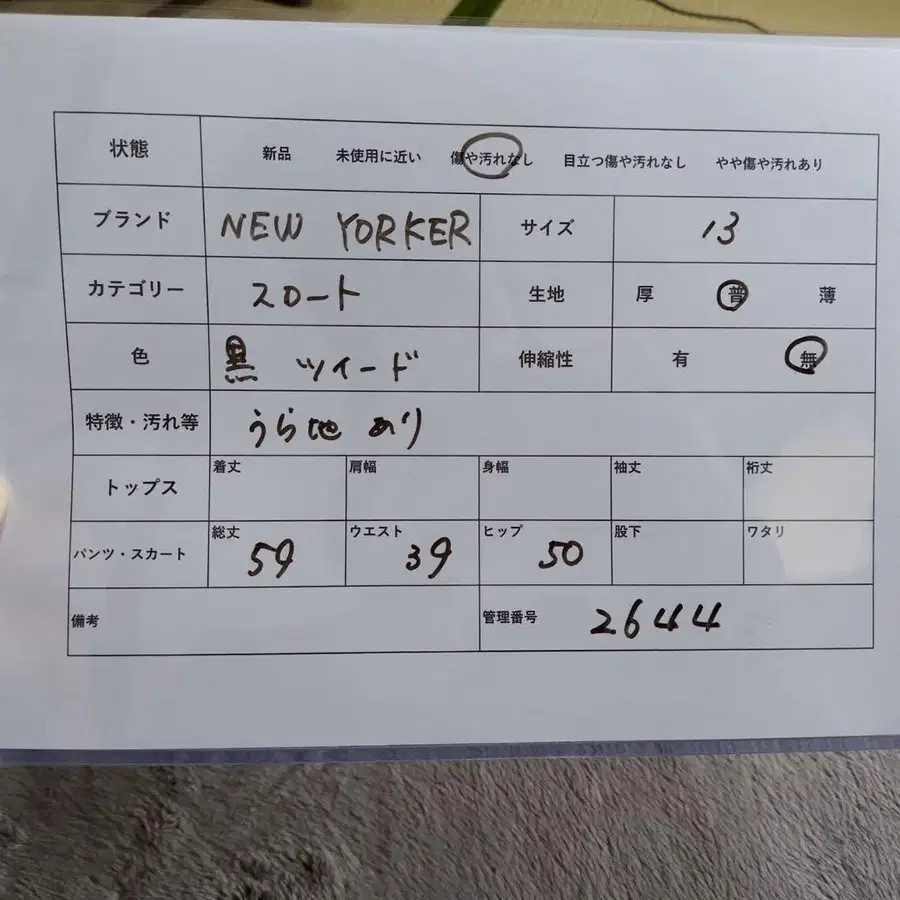 状態 新品 未使用に近い 傷や汚れなし 目立つ傷や汚れなし やや傷や汚れあり
ブランド NEW YORKER サイズ 13
カテゴリー スロート 生地 厚 普 薄
色 黒 ツイード 伸縮性 有 無
特徴・汚れ等 うら地 あり
トップス 着丈 肩幅 身幅 袖丈 裄丈
パンツ・スカート 総丈 59 ウエスト 39 ヒップ 50 股下 ワタリ
備考 管理番号 2644